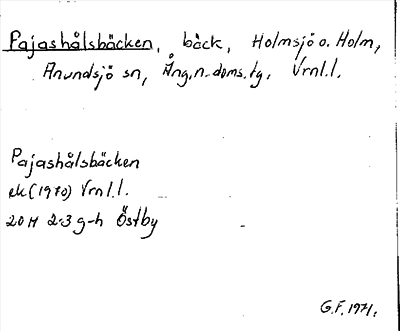 Pajashålsbäcken, bäck, Holmsjö o. Holm,
Anundsjö sn, Ång. n. doms. tg. Vrnl.l.
Pajashålsbäcken
ek (1970) Vrnl.l.
20 H 2-3 g-h Östby
G.F. 1971.